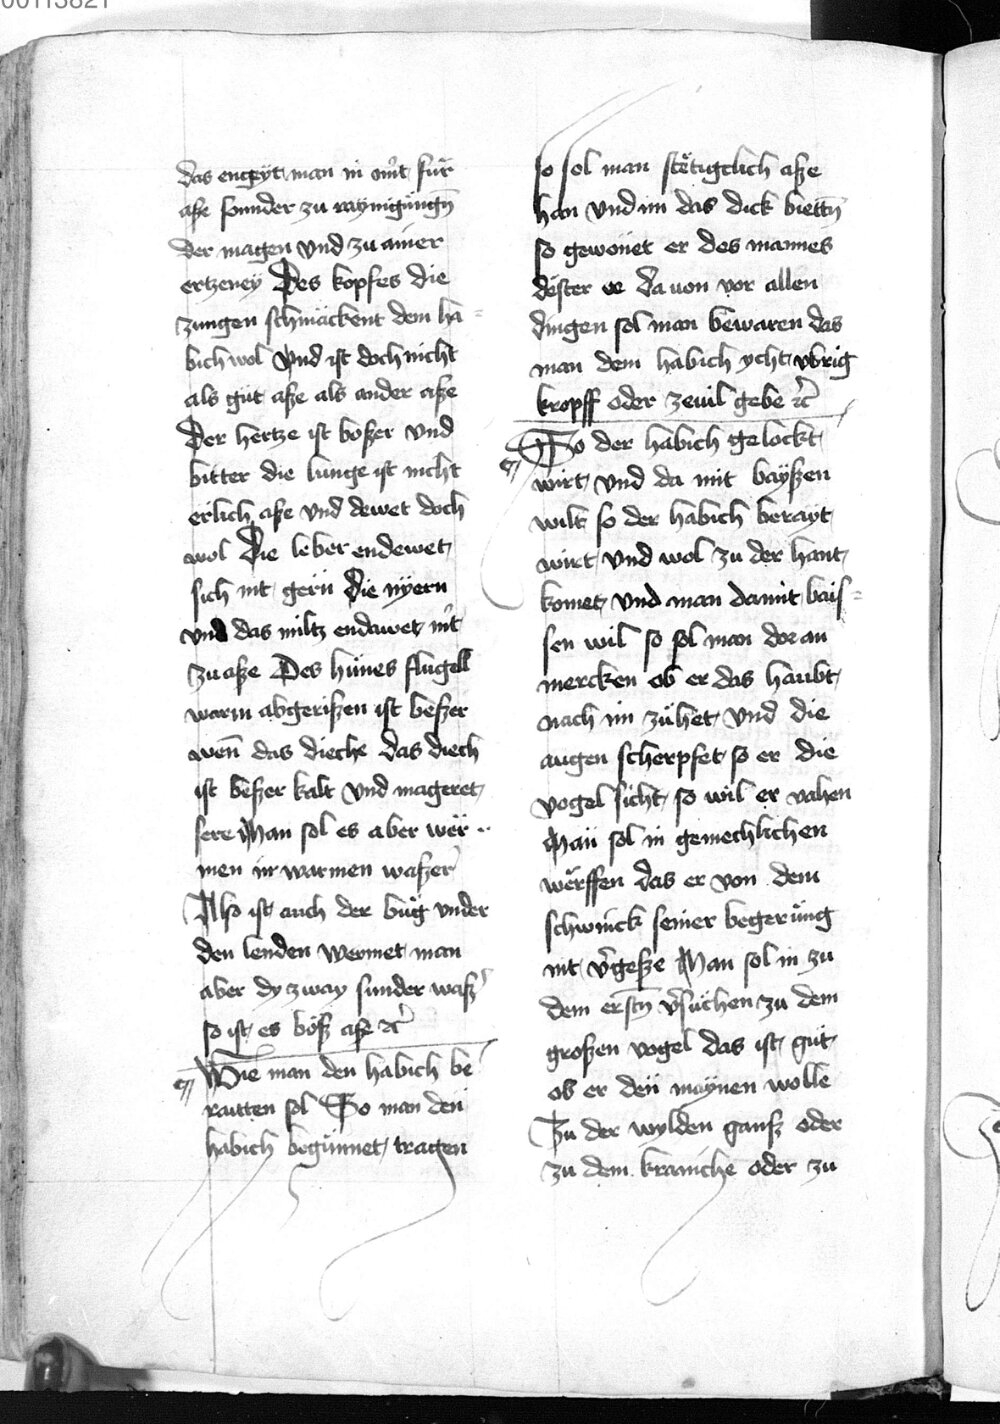 00113821
das engyt man in nit für
aße sonnder zu raynigungñ
der magen vnd zu ainer
ertzeney Des kopfes die
zungen schmäckent dem ha=
bich wol Vnd ist doch nicht
als güt aße als ander aße
Der hertze ist boßer vnd
bitter die lunge ist nicht
erlich aße vnd dewet doch
wol Die leber endewet
sich nit gern Die nyern
vnd das miltz endawet nit
zu aße Des hünes flugell
warm abgerißen ist beßer
wen̄ das dieche das diech
ist beßer kalt vnd mageret
sere Man sol es aber wër
men in warmen waßer
Also ist auch der büg vnder
den lenden wermet man
aber dy zway sunder waß᷑
so ist es böß aße ꝛc
Wie man den habich be
raitten sol So man den
habich begünnet tragen
so sol man stëtigclich aße
han vnd im das dick bietñ
so gewonet er des mannes
dëster ee da uon vor allen
dingen sol man bewaren das
man dem habich ycht vbrig
kropff oder zeuil gebe ꝛc
So der habich gelockt
wirt vnd da mit bayßen
wilt so der habich berayt
wirt vnd wol zu der hant
komet vnd man damit bais=
sen wil so sol man dor an
mercken ob er das haubt
nach im zühet vnd die
augen scherpfet so er die
vogel sicht so wil er vahen
Man sol in gemechlichen
wërffen das er von dem
schwinck seiner begerüng
nit v᷑geße Man sol in zu
dem erstñ v᷑süchen zu dem
großen vogel das ist güt
ob er den maynen wolle
Zu der wylden ganß oder
zu dem kraniche oder zu